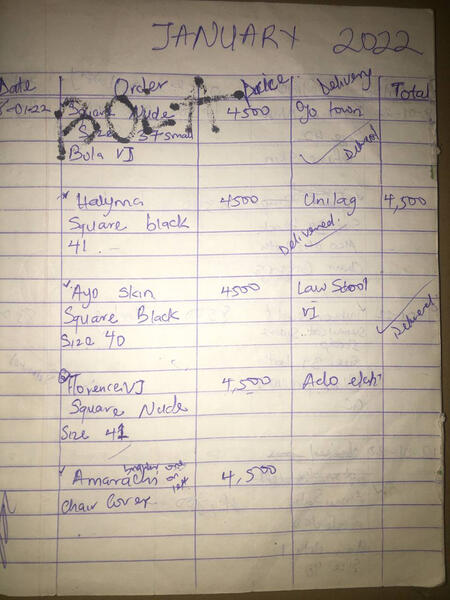 JANUARY 2022
Date Order price Delivery Total
-01-22 Square Nude 4500 Yo town
Size 37 small
Bola VJ Delivered
Halyma 4500 Unilag 4,500
Square black Delivered.
41
Ayo Skin 4500 Law Scool
Square Black VJ Delivered
Size 40
Florence VJ 4,500 Ado
Square Nude
Size 41
Amarachi 4,500
Chair Cover